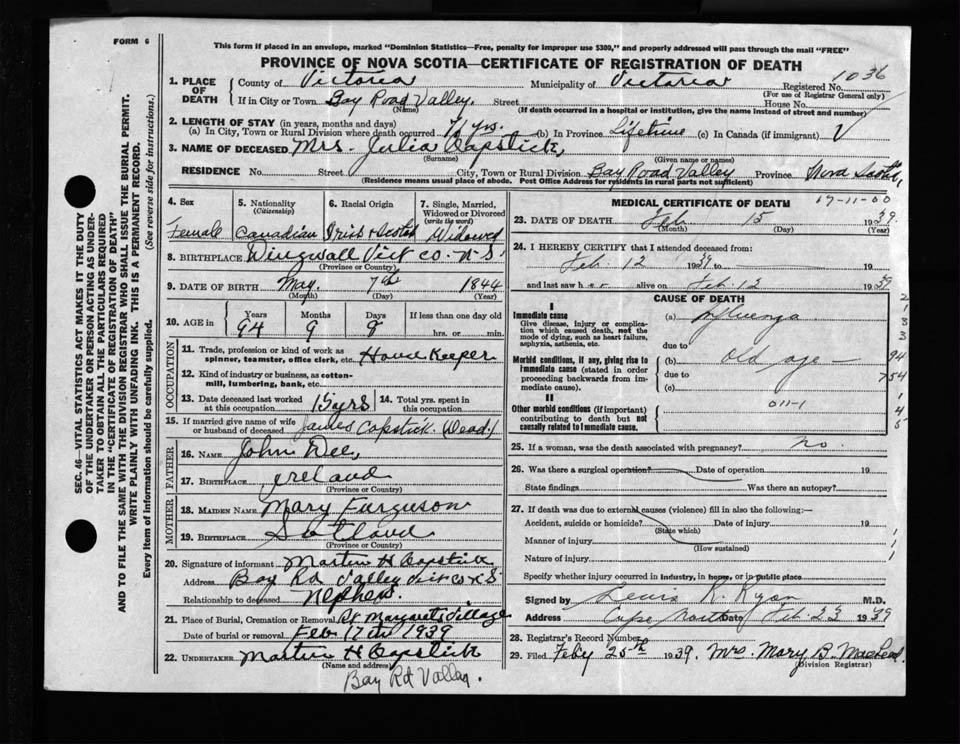 FORM 6
This form if placed in an envelope, marked "Dominion Statistics—Free, penalty for improper use $300," and properly addressed will pass through the mail "FREE"
PROVINCE OF NOVA SCOTIA—CERTIFICATE OF REGISTRATION OF DEATH
1. PLACE OF DEATH
County of Victoria Municipality of Victoria Registered No. 1036
(For use of Registrar General only)
If in City or Town Bay Road Valley. Street House No.
(Name) (If death occurred in a hospital or institution, give the name instead of street and number)
2. LENGTH OF STAY (in years, months and days)
(a) In City, Town or Rural Division where death occurred yrs. (b) In Province Lifetime (c) In Canada (if immigrant)
3. NAME OF DECEASED Mrs. Julia Capstick,
(Surname) (Given name or names)
RESIDENCE No. Street City, Town or Rural Division Bay Road Valley Province Nova Scotia,
(Residence means usual place of abode. Post Office Address for residents in rural parts not sufficient)
4. Sex
Female
5. Nationality
(Citizenship)
Canadian
6. Racial Origin
Irish & Scotch
7. Single, Married, Widowed or Divorced
(write the word)
Widowed
8. BIRTHPLACE Dingwall Vict co. N S
(Province or Country)
9. DATE OF BIRTH May. 7th 1844
(Month) (Day) (Year)
10. AGE in Years Months Days If less than one day old
94 9 8 hrs. or min.
OCCUPATION
11. Trade, profession or kind of work as spinner, teamster, office clerk, etc. House Keeper
12. Kind of industry or business, as cotton-mill, lumbering, bank, etc.
13. Date deceased last worked at this occupation 15 yrs 14. Total yrs. spent in this occupation
15. If married give name of wife or husband of deceased James Capstick (Dead)
FATHER
16. NAME John Dee,
17. BIRTHPLACE Ireland
(Province or Country)
MOTHER
18. MAIDEN NAME Mary Furguson
19. BIRTHPLACE Scotland
(Province or Country)
20. Signature of informant Martin H Capstick
Address Bay Rd Valley Vict co N S
Relationship to deceased Nephew.
21. Place of Burial, Cremation or Removal St Margarets Village
Date of burial or removal Feb 17th 1939
22. UNDERTAKER Martin H Capstick
(Name and address)
Bay Rd Valley.
MEDICAL CERTIFICATE OF DEATH 17-11-00
23. DATE OF DEATH Feb 15 1939.
(Month) (Day) (Year)
24. I HEREBY CERTIFY that I attended deceased from:
Feb. 12 1939 to 19
and last saw her alive on Feb. 12 1939
CAUSE OF DEATH
I
Immediate cause
Give disease, injury or complication which caused death, not the mode of dying, such as heart failure, asphyxia, asthenia, etc.
(a) Influenza
due to
Morbid conditions, if any, giving rise to immediate cause (stated in order proceeding backwards from immediate cause).
(b) old age
due to
(c)
94
754
II
Other morbid conditions (if important) contributing to death but not causally related to immediate cause.
011-1
25. If a woman, was the death associated with pregnancy? no.
26. Was there a surgical operation? Date of operation 19
State findings Was there an autopsy?
27. If death was due to external causes (violence) fill in also the following:—
Accident, suicide or homicide? Date of injury 19
(State which)
Manner of injury
(How sustained)
Nature of injury
Specify whether injury occurred in industry, in home, or in public place
Signed by Lewis R. Ryan M.D.
Address Cape North Date Feb. 23 1939
28. Registrar's Record Number
29. Filed Feb'y 25th 1939. Mrs. Mary B. MacLeod.
(Division Registrar)
SEC. 46—VITAL STATISTICS ACT MAKES IT THE DUTY
OF THE UNDERTAKER OR PERSON ACTING AS UNDER-
TAKER TO OBTAIN ALL THE PARTICULARS REQUIRED
IN THE "CERTIFICATE OF REGISTRATION OF DEATH"
AND TO FILE THE SAME WITH THE DIVISION REGISTRAR WHO SHALL ISSUE THE BURIAL PERMIT.
WRITE PLAINLY WITH UNFADING INK. THIS IS A PERMANENT RECORD.
Every item of information should be carefully supplied. (See reverse side for instructions.)